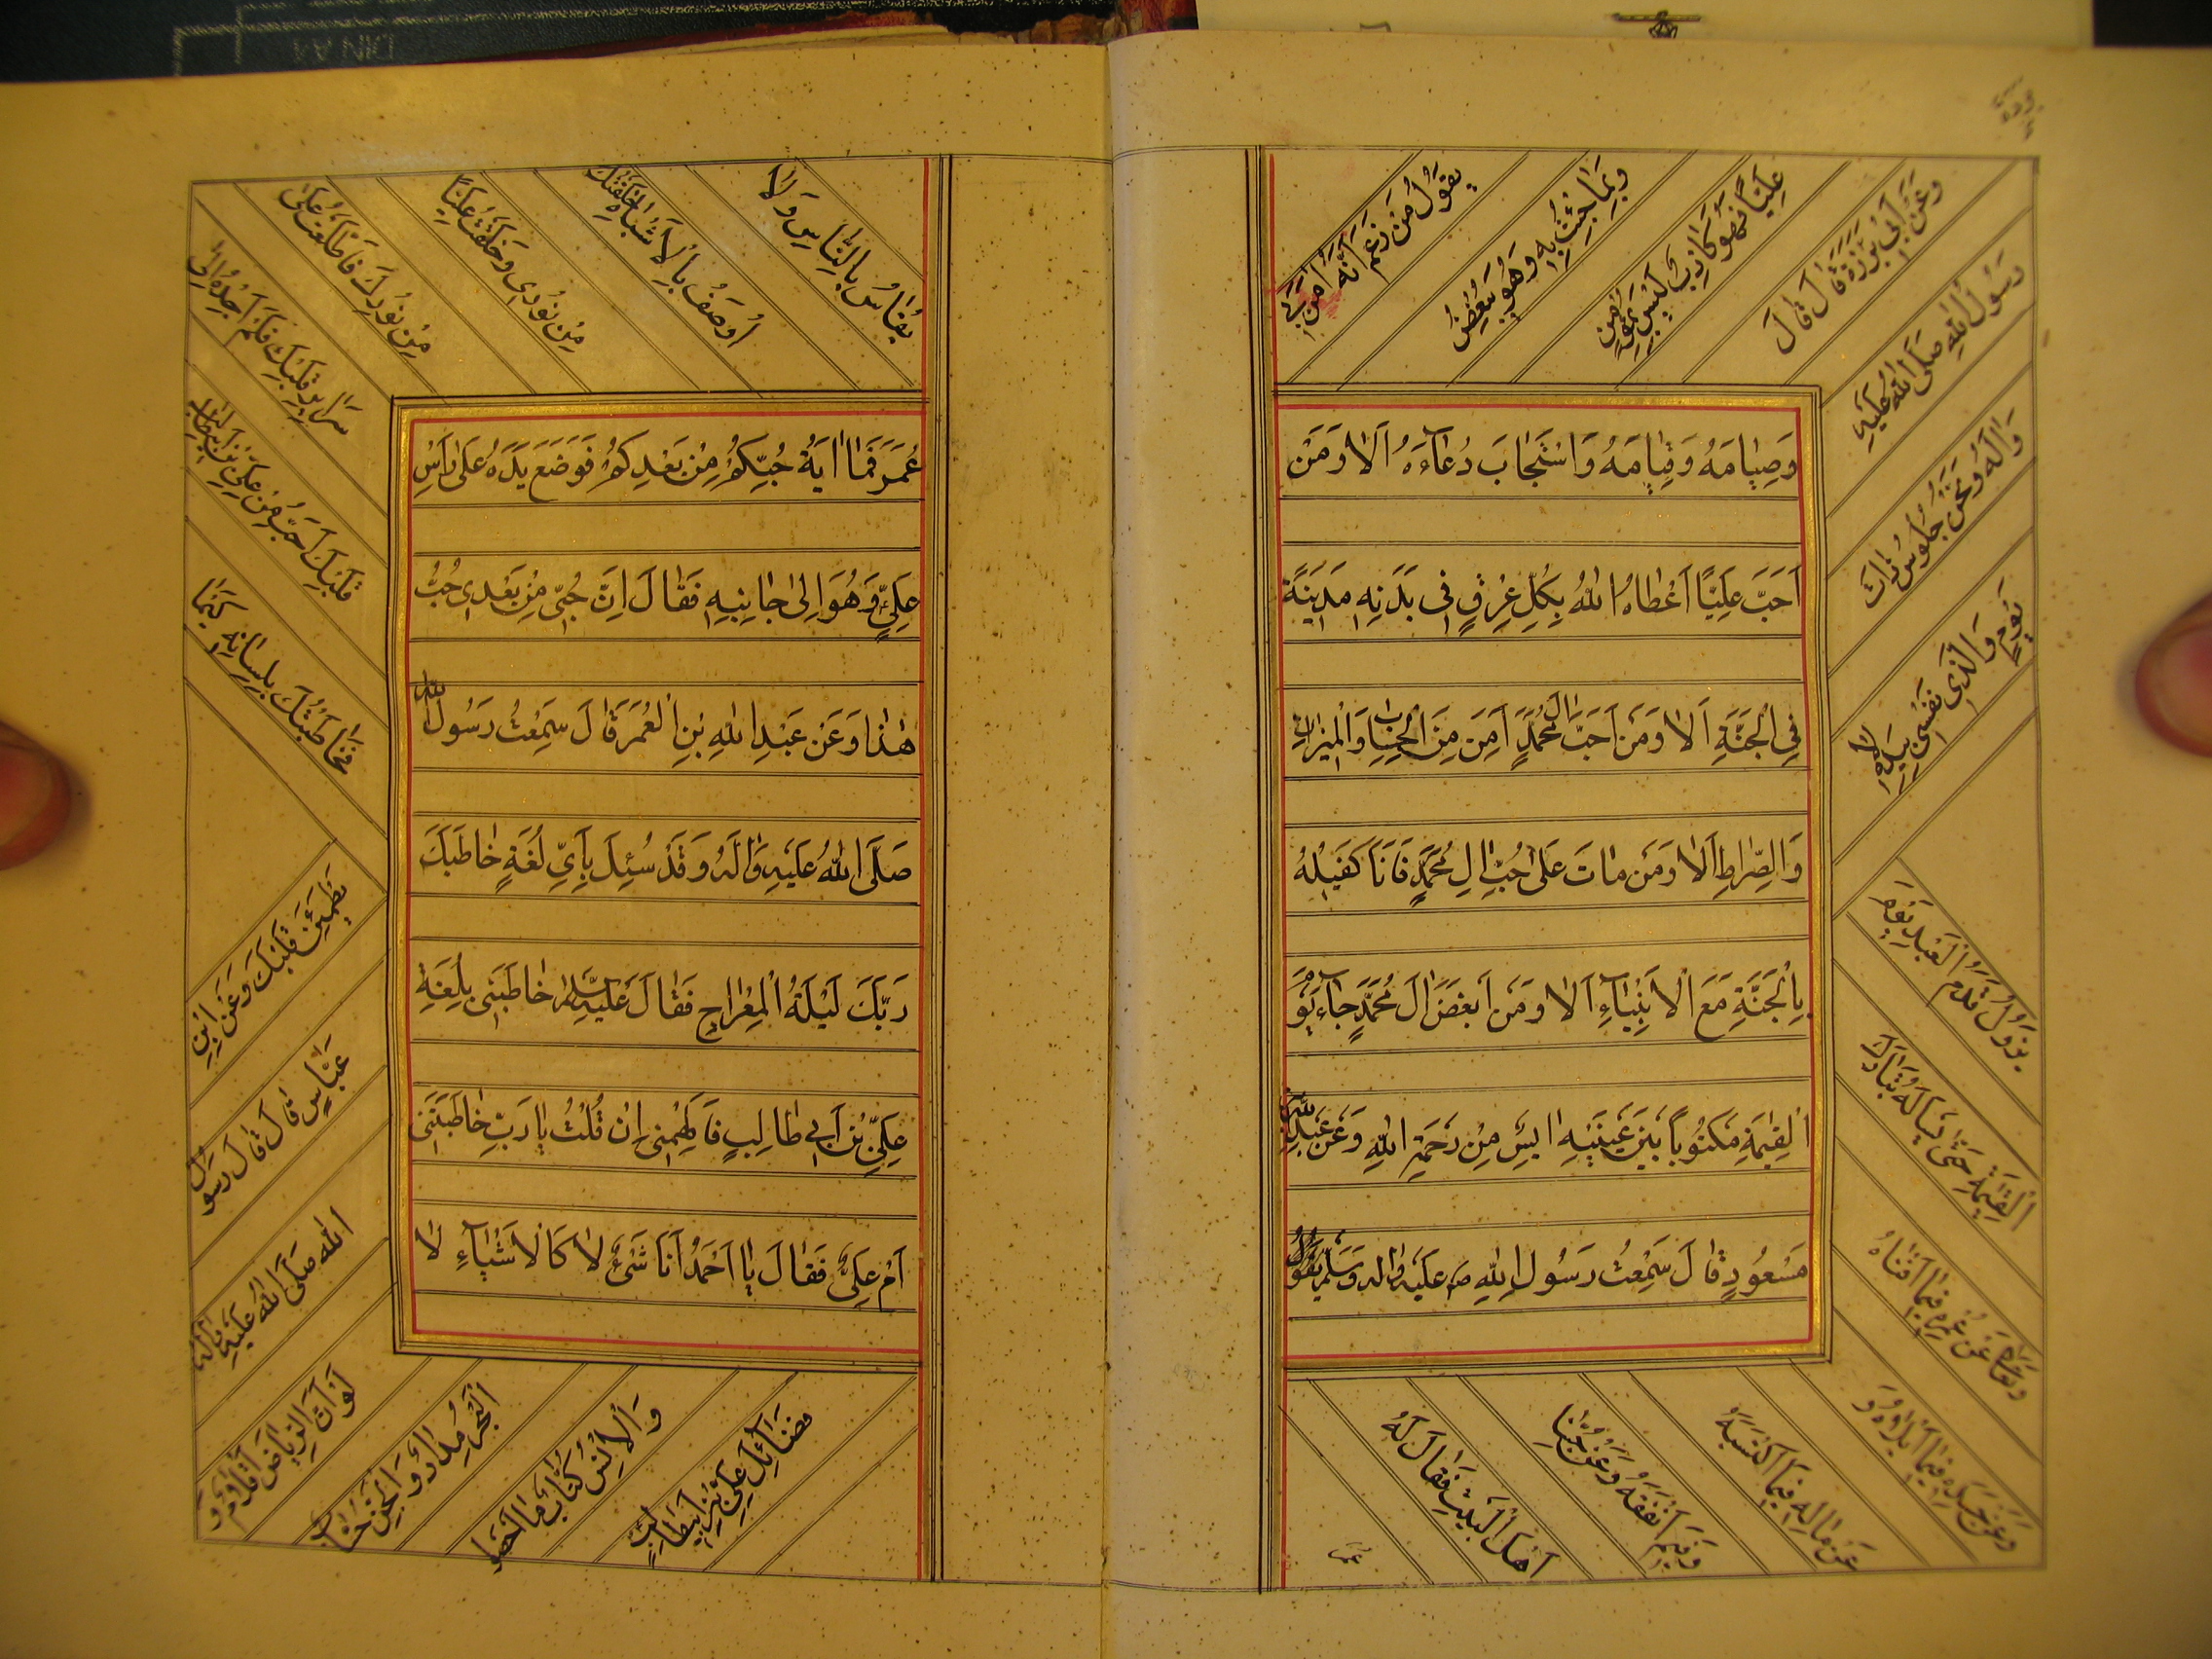 وَصِيامَهُ وَقِيامَهُ وَاسْتَجابَ دُعآءَهُ اَلا وَمَنْ
اَحَبَّ عَلِيًّا اَعْطاهُ اللّٰهُ بِكُلِّ عِرْقٍ فى بَدَنِهِ مَدينَةً
فِى الْجَنَّةِ اَلا وَمَنْ اَحَبَّ الَ مُحَمَّدٍ اَمِنَ مِنَ الْحِسابِ وَالْميزانِ
وَالصِّراطِ اَلا وَمَنْ ماتَ عَلى حُبِّ الِ مُحَمَّدٍ فَاَنَا كَفيلُهُ
بِالْجَنَّةِ مَعَ الْاَنْبِيآءِ اَلا وَمَنْ اَبْغَضَ الَ مُحَمَّدٍ جآءَ يَوْمَ
الْقِيمَةِ مَكْتُوباً بَيْنَ عَيْنَيْهِ ايِسٌ مِنْ رَحْمَةِ اللّٰهِ وَعَنْ عَبْدِ اللّٰهِ بْنِ
مَسْعُودٍ قالَ سَمِعْتُ رَسُولَ اللّٰهِ ص عَلَيْهِ وَالِهِ وَسَلَّمَ يَقُولُ
يَقُولُ مَنْ زَعَمَ اَنَّهُ امَنَ بى
وَبِما جِئْتُ بِهِ وَهُوَ يُبْغِضُ
عَلِيًّا فَهُوَ كاذِبٌ لَيْسَ بِمُؤْمِنٍ
وَعَنْ اَبى بَرْزَةَ قالَ قالَ
رَسُولُ اللّٰهِ صَلَّى اللّٰهُ عَلَيْهِ
وَالِهِ وَنَحْنُ جُلُوسٌ ذاتَ
يَوْمٍ وَالَّذى نَفْسى بِيَدِهِ لا
يَزُولُ قَدَمُ الْعَبْدِ يَوْمَ
الْقِيمَةِ حَتّى يَسْاَلَهُ تَبارَكَ
وَتَعالى عَنْ عُمْرِهِ فيما اَفْناهُ
وَعَنْ جَسَدِهِ فيما اَبْلاهُ وَ
عَنْ مالِهِ فيما اكْتَسَبَهُ
وَفيمَ اَنْفَقَهُ وَعَنْ حُبِّنا
اَهْلَ الْبَيْتِ فَقالَ لَهُ
عُمَرُ
عُمَرُ فَما ايَةُ حُبِّكُمْ مِنْ بَعْدِكُمْ فَوَضَعَ يَدَهُ عَلى رَاْسِ
عَلِىٍّ وَهُوَ اِلى جانِبِهِ فَقالَ اِنَّ حُبّى مِنْ بَعْدى حُبُّ
هذا وَعَنْ عَبْدِ اللّٰهِ بْنِ الْعُمَرَ قالَ سَمِعْتُ رَسُولَ اللّٰهِ
صَلَّى اللّٰهُ عَلَيْهِ وَالِهِ وَقَدْ سُئِلَ بِاَىِّ لُغَةٍ خاطَبَكَ
رَبُّكَ لَيْلَةَ الْمِعْراجِ فَقالَ عَلَيْهِ السَّلامُ خاطَبَنى بِلُغَةِ
عَلِىِّ بْنِ اَبى طالِبٍ فَاَلْهَمَنى اِنْ قُلْتُ يا رَبِّ خاطَبْتَنى
اَمْ عَلِىٌّ فَقالَ يا اَحْمَدُ اَنَا شَىْءٌ لا كَالْاَشْيآءِ لا
يُقاسُ بِالنّاسِ وَلا
اُوصَفُ بِالْاَشْباهِ خَلَقْتُكَ
مِنْ نُورى وَخَلَقْتُ عَلِيًّا
مِنْ نُورِكَ فَاطَّلَعْتُ عَلى
سَرائِرِ قَلْبِكَ فَلَمْ اَجِدْ اِلى
قَلْبِكَ اَحَبَّ مِنْ عَلِىِّ بْنِ اَبيطالِبٍ
فَخاطَبْتُكَ بِلِسانِهِ كَيْما
يَطْمَئِنَّ قَلْبُكَ وَعَنِ ابْنِ
عَبّاسٍ قالَ قالَ رَسُولُ
اللّٰهِ صَلَّى اللّٰهُ عَلَيْهِ وَالِهِ
لَوْ اَنَّ الرِّياضَ اَقْلامٌ وَ
الْبَحْرَ مِدادٌ وَالْجِنَّ حُسّابٌ
وَالْاِنْسَ كُتّابٌ ما اَحْصَوْا
فَضآئِلَ عَلِىِّ بْنِ اَبيطالِبٍ